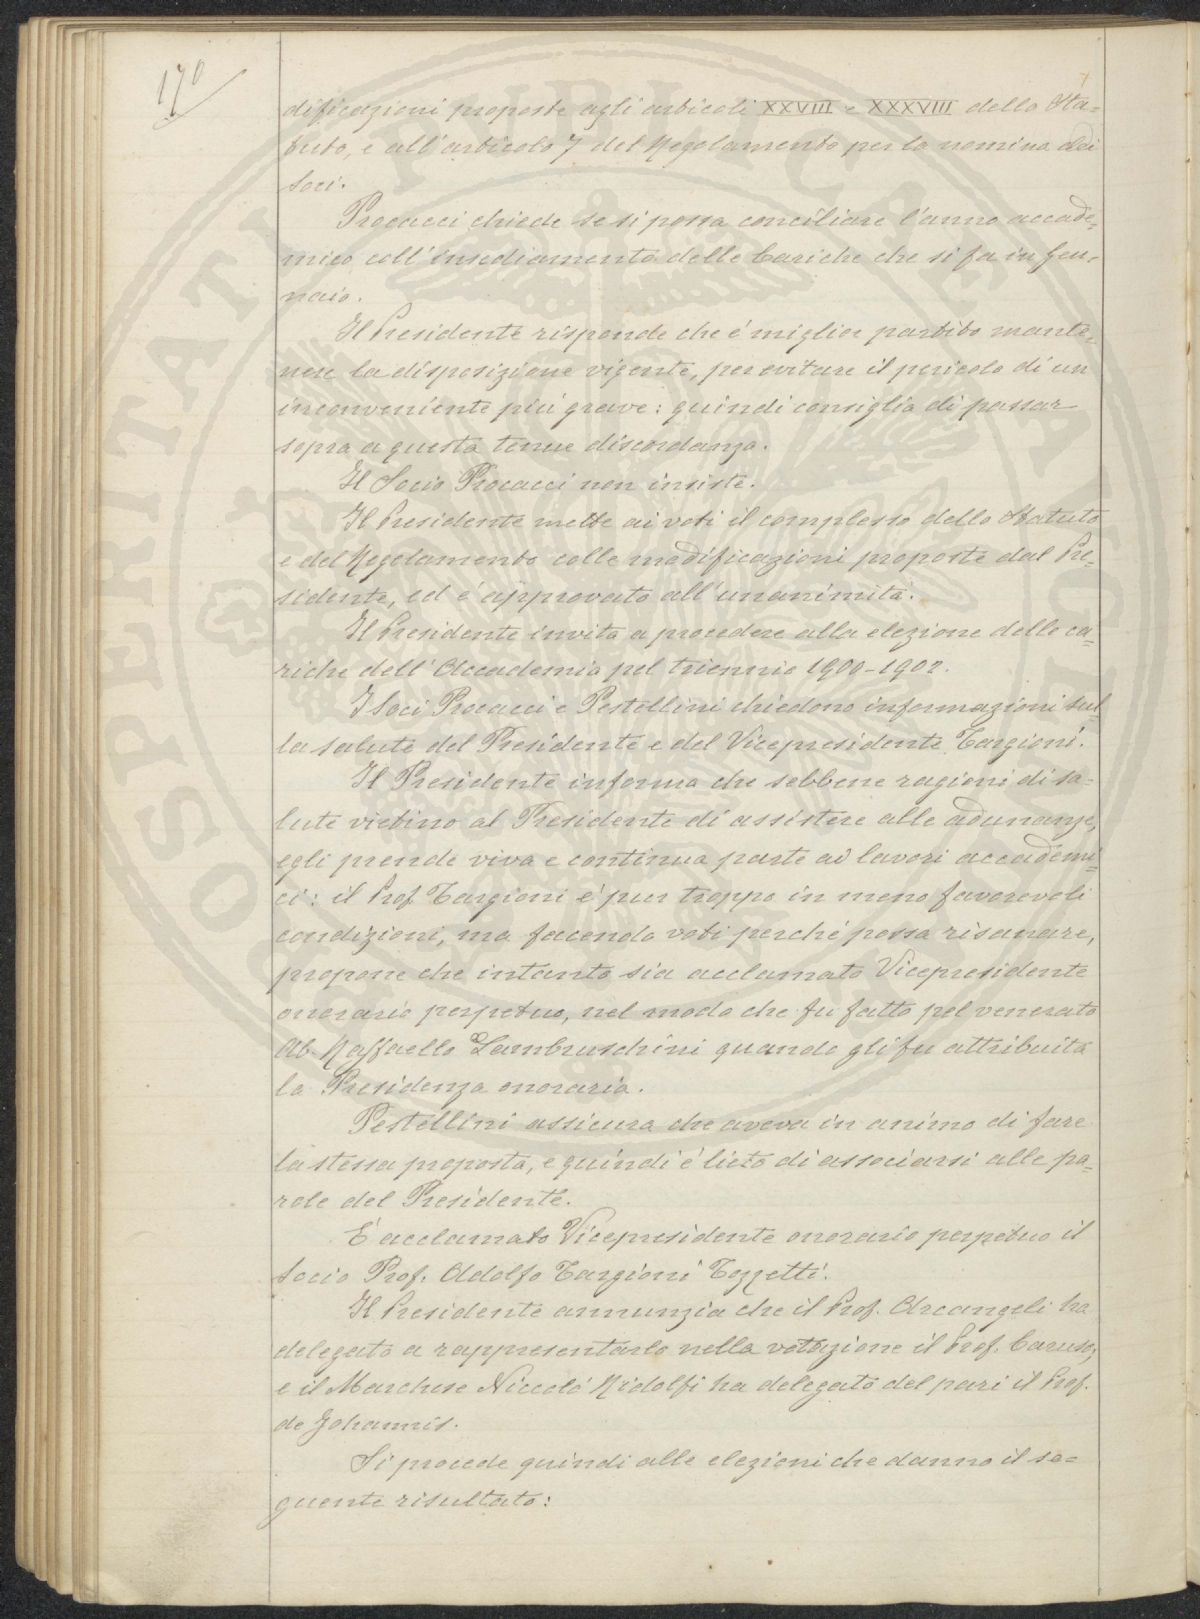 170
dificazioni proposte agli articoli XXVIII e XXXVIII dello Sta=
tuto, e all'articolo 7 del Regolamento per la nomina dei
Soci.
Procacci chiede se si possa conciliare l'anno accade=
mico coll'insediamento delle Cariche che si fa in Gen=
naio.
Il Presidente risponde che é miglior partito mante=
nere la disposizione vigente, per evitare il pericolo di un
inconveniente piú grave: quindi consiglia di passar
sopra a questa tenue discordanza.
Il Socio Procacci non insiste.
Il Presidente mette ai voti il complesso dello Statuto
e del Regolamento colle modificazioni proposte dal Pre=
sidente, ed é approvato all'unanimitá.
Il Presidente invita a procedere alla elezione delle ca=
riche dell'Accademia pel triennio 1900-1902.
I Soci Procacci e Pestellini chiedono informazioni sul=
la salute del Presidente e del Vicepresidente Targioni.
Il Presidente informa che sebbene ragioni di sa=
lute vietino al Presidente di assistere alle adunanze,
egli prende viva e continua parte ai lavori accademi=
ci: il Prof. Targioni é pur troppo in meno favorevoli
condizioni, ma facendo voti perché possa risanare,
propone che intanto sia acclamato Vicepresidente
onorario perpetuo, nel modo che fu fatto pel venerato
Ab. Raffaello Lambruschini quando gli fu attribuita
la Presidenza onoraria.
Pestellini assicura che aveva in animo di fare
la stessa proposta, e quindi é lieto di associarsi alle pa=
role del Presidente.
É acclamato Vicepresidente onorario perpetuo il
Socio Prof. Adolfo Targioni Tozzetti.
Il Presidente annunzia che il Prof. Arcangeli ha
delegato a rappresentarlo nella votazione il Prof. Caruso,
e il Marchese Niccoló Ridolfi ha delegato del pari il Prof.
de Johannis.
Si procede quindi alle elezioni che danno il se=
guente risultato:
PROSPERITATI PUBLICAE AUGENDAE